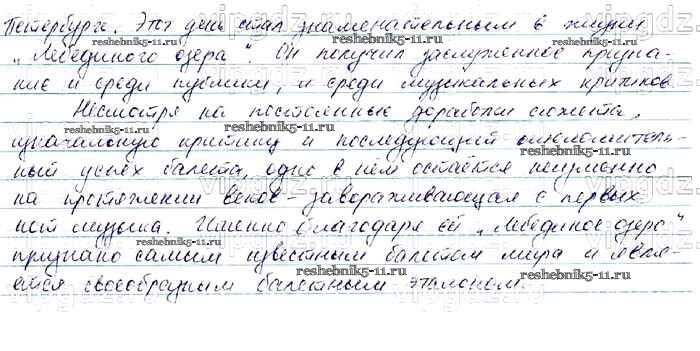 Петербурге. Этот день стал знаменательным в жизни
„Лебединого озера“. Он получил заслуженное призна-
ние и среди публики, и среди музыкальных критиков.
Несмотря на постоянные доработки сюжета,
изначальную критику и последующий ошеломитель-
ный успех балета, одно в нём остаётся неизменно
на протяжении веков – завораживающая с первых
нот музыка. Именно благодаря ей „Лебединое озеро“
признано самым известным балетом мира и явля-
ется своеобразным балетным эталоном.
reshebnik5-11.ru
vipgdz.ru